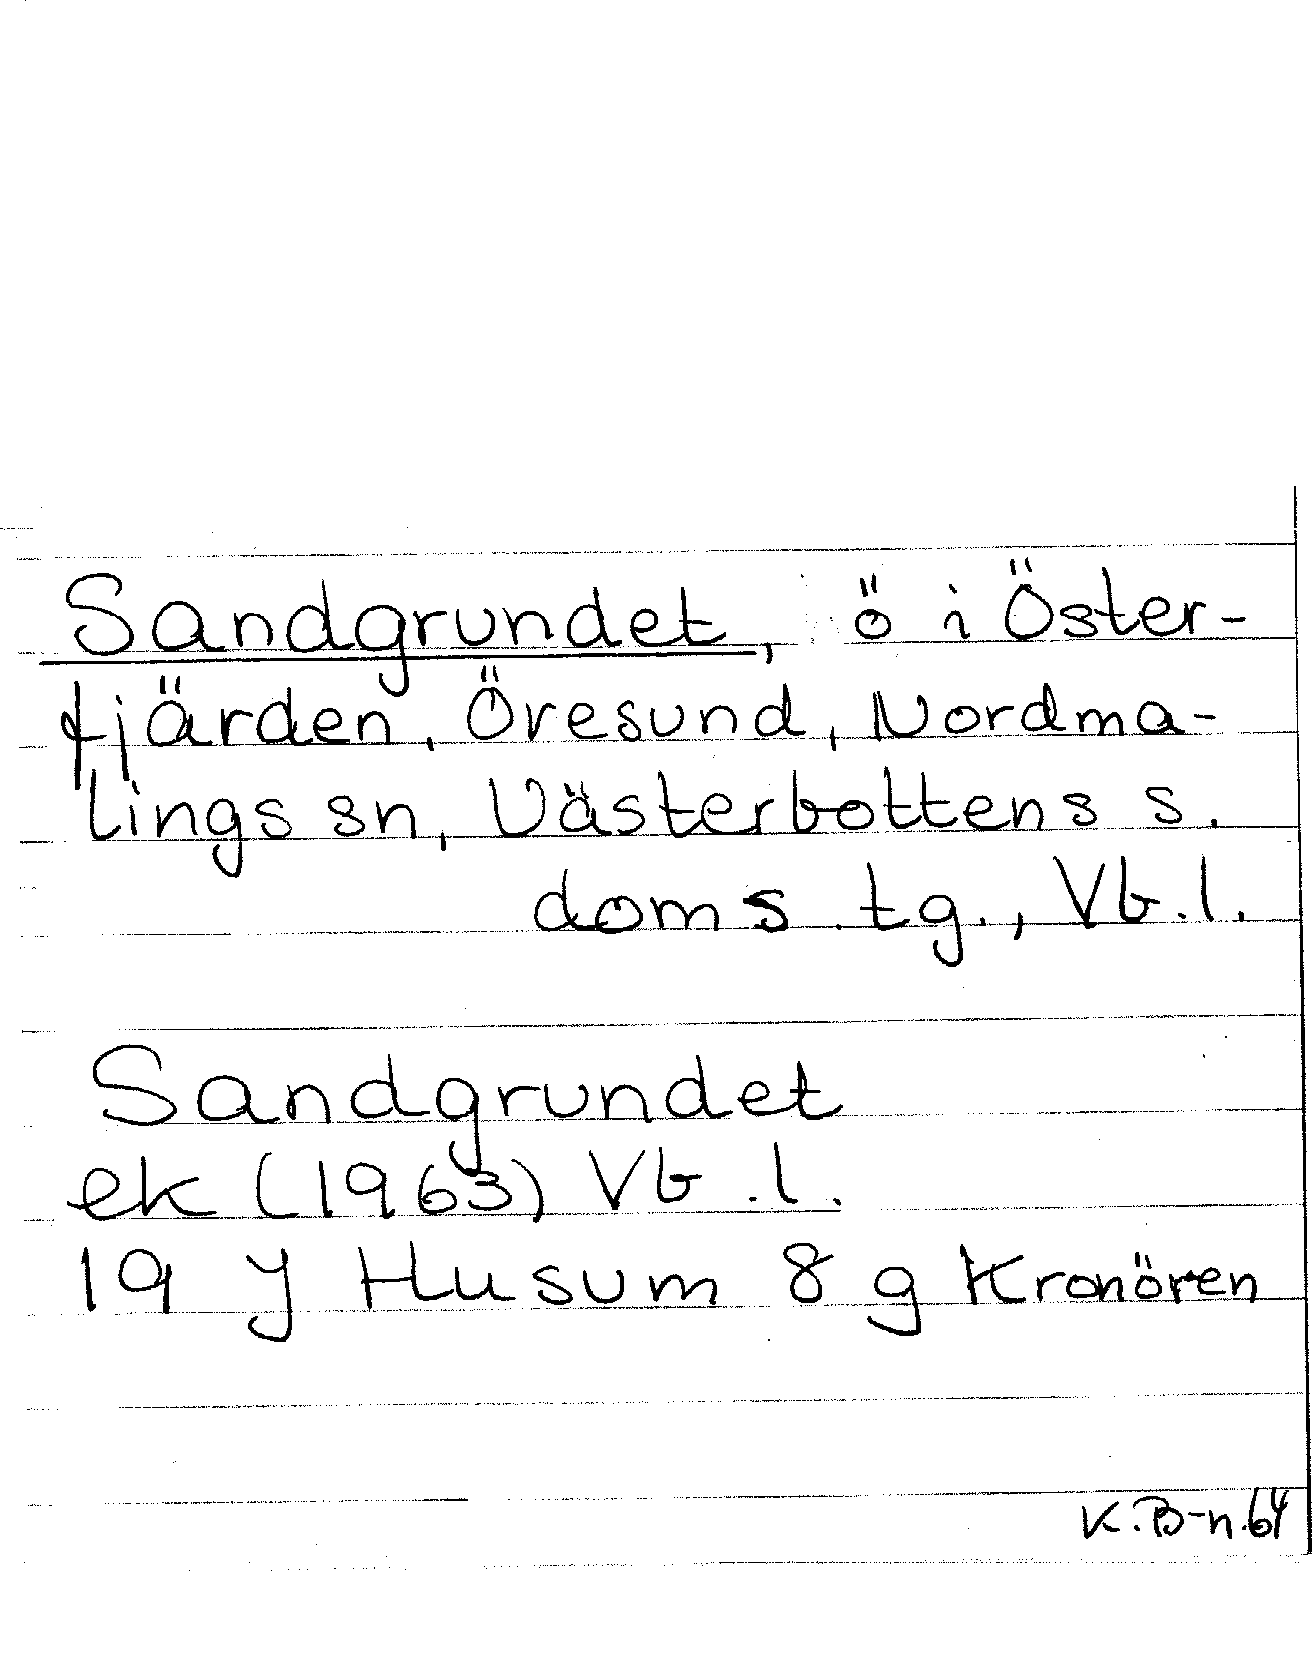 Sandgrundet, ö i Öster-
fjärden, Öresund, Nordma-
lings sn, Västerbottens s.
doms.tg., Vb.l.
Sandgrundet
ek (1963) Vb.l.
19 J Husum 8 g Kronören
K.B-n.64